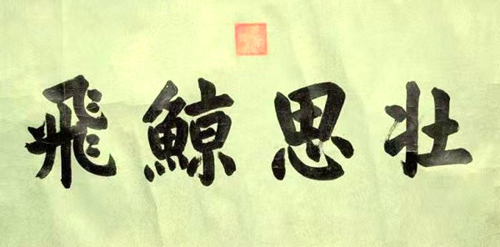 壯思鯨飛